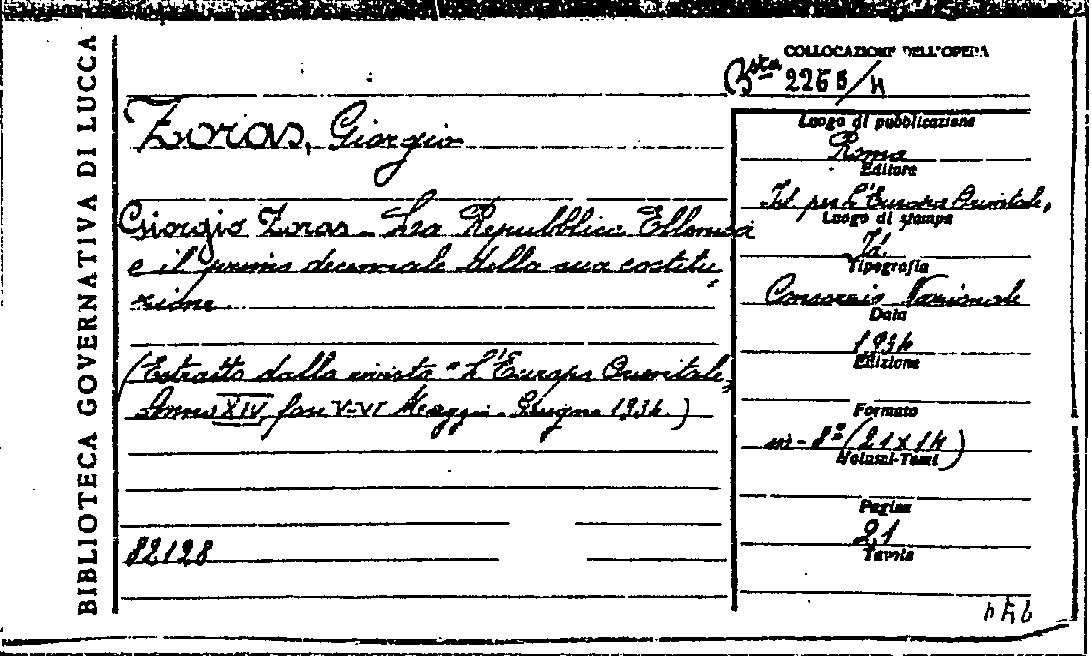 BIBLIOTECA GOVERNATIVA DI LUCCA
COLLOCAZIONE DELL'OPERA
Bsta 2265/4
Zoras, Giorgio
Giorgio Zoras - La Repubblica Ellenica
e il primo decennale della sua costitu
zione
(Estratto dalla rivista "L'Europa Orientale,,
Anno XIV, fasc V-VI Maggio-Giugno 1934.)
82128
Luogo di pubblicazione
Roma
Editore
Ist per l'Europa Orientale,
Luogo di stampa
Id.
Tipografia
Consorzio Nazionale
Data
1934
Edizione
Formato
in-8° (21x14)
Volumi-Tomi
Pagine
21
Tavole